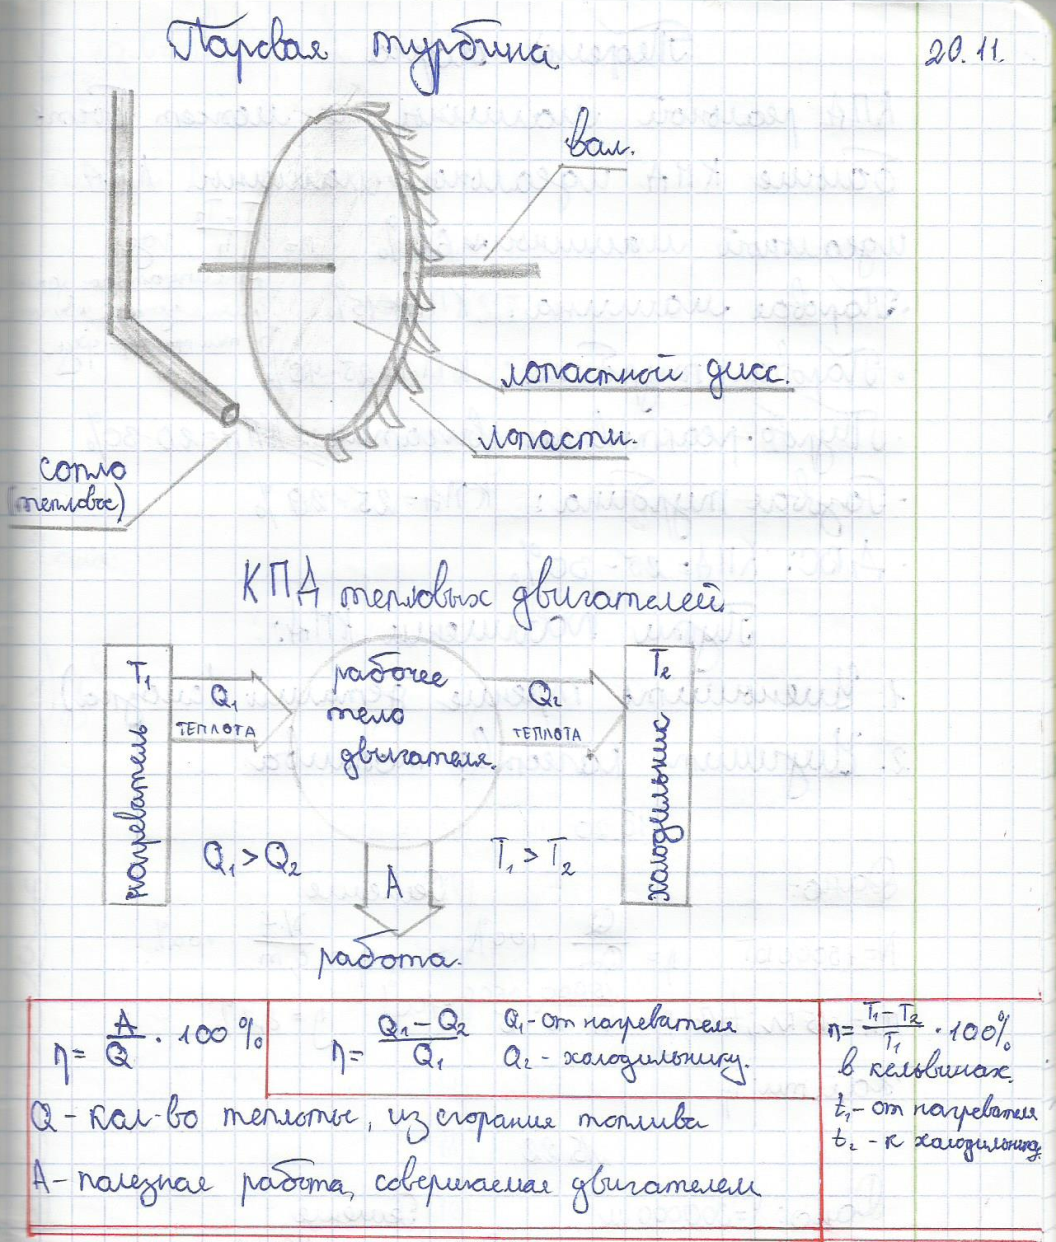 Паровая турбина
20.11.
вал.
лопастной дисс.
лопасти.
сопло
(тепловое)
КПД тепловых двигателей.
T₁
нагреватель
Q₁
ТЕПЛОТА
рабочее
тело
двигателя.
Q₂
ТЕПЛОТА
T₂
холодильник
Q₁ > Q₂
T₁ > T₂
A
работа.
η = A/Q · 100 %
η = Q₁ – Q₂ / Q₁
Q₁ - от нагревателя
Q₂ - холодильнику.
η = T₁ – T₂ / T₁ · 100%
в кельвинах.
t₁ - от нагревателя
t₂ - к холодильнику.
Q – кол-во теплоты, из сгорания топлива
A – полезная работа, совершаемая двигателем